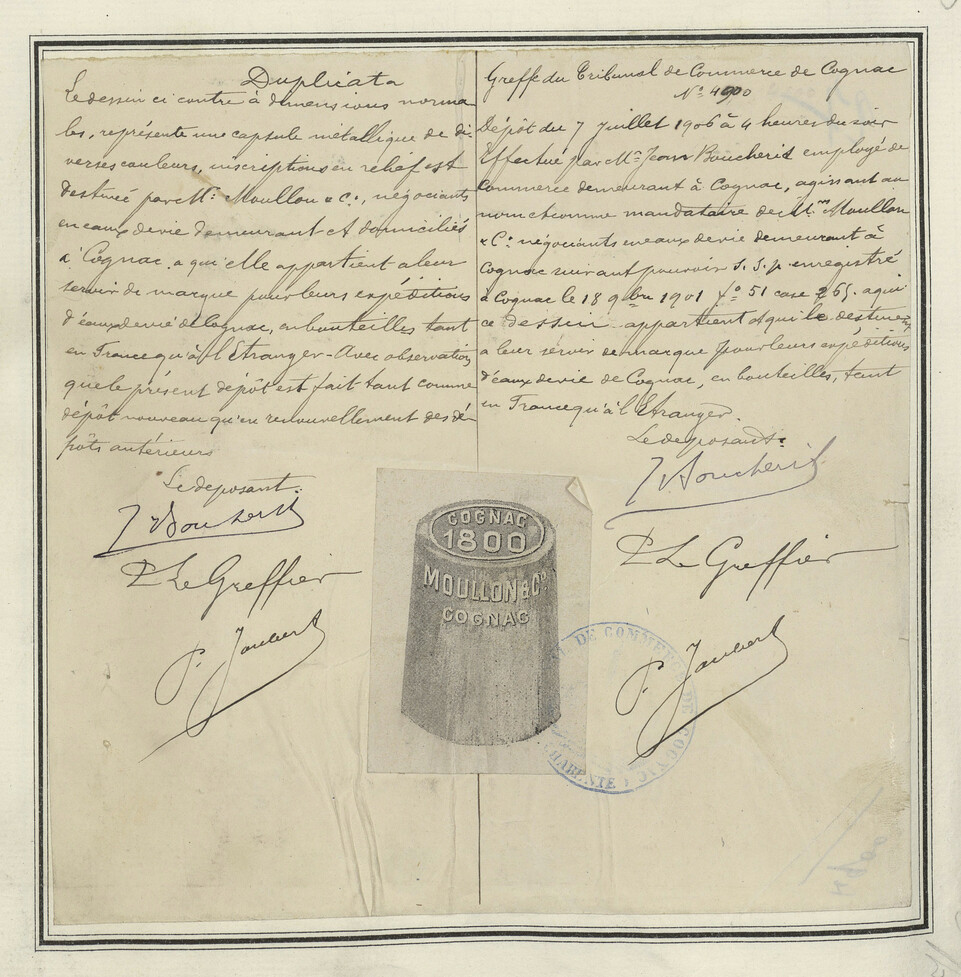 Duplicata
Le dessin ci contre à dimensions norma-
les, représente une capsule métallique de di-
verses couleurs, inscriptions en relief est
destinée par Mrs Moullon & Co, négociants
en eaux de vie demeurant et domiciliés
à Cognac, a qu'elle appartient a leur
servir de marque pour leurs expéditions
d'eaux de vie de Cognac, en bouteilles tant
en France qu'à l'Etranger - Avec observation
que le présent dépôt est fait tant comme
dépôt nouveau qu'en renouvellement des dé-
pôts antérieurs
Le deposant.
J Boucherit
P Le Greffier
P. Joubert
Greffe du Tribunal de Commerce de Cognac
No 4900
Dépôt du 7 Juillet 1906 à 4 heures du soir
Effectué par Mr Jean Boucherit employé de
Commerce demeurant à Cognac, agissant au
nom et comme mandataire de Mrs Moullon
& Co négociants en eaux de vie demeurant à
Cognac suivant pouvoir S.S.p. enregistré
à Cognac le 18 9bre 1901 fo 51 case 265. a qui
ce dessin appartient et qui le destinent
a leur servir de marque pour leurs expéditions
d'eaux de vie de Cognac, en bouteilles, tant
en France qu'à l'Etranger.
Le deposant:
J Boucherit
P Le Greffier
P. Joubert
COGNAC
1800
MOULLON & Co
COGNAC
DE COMMERCE DE COGNAC
CHARENTE